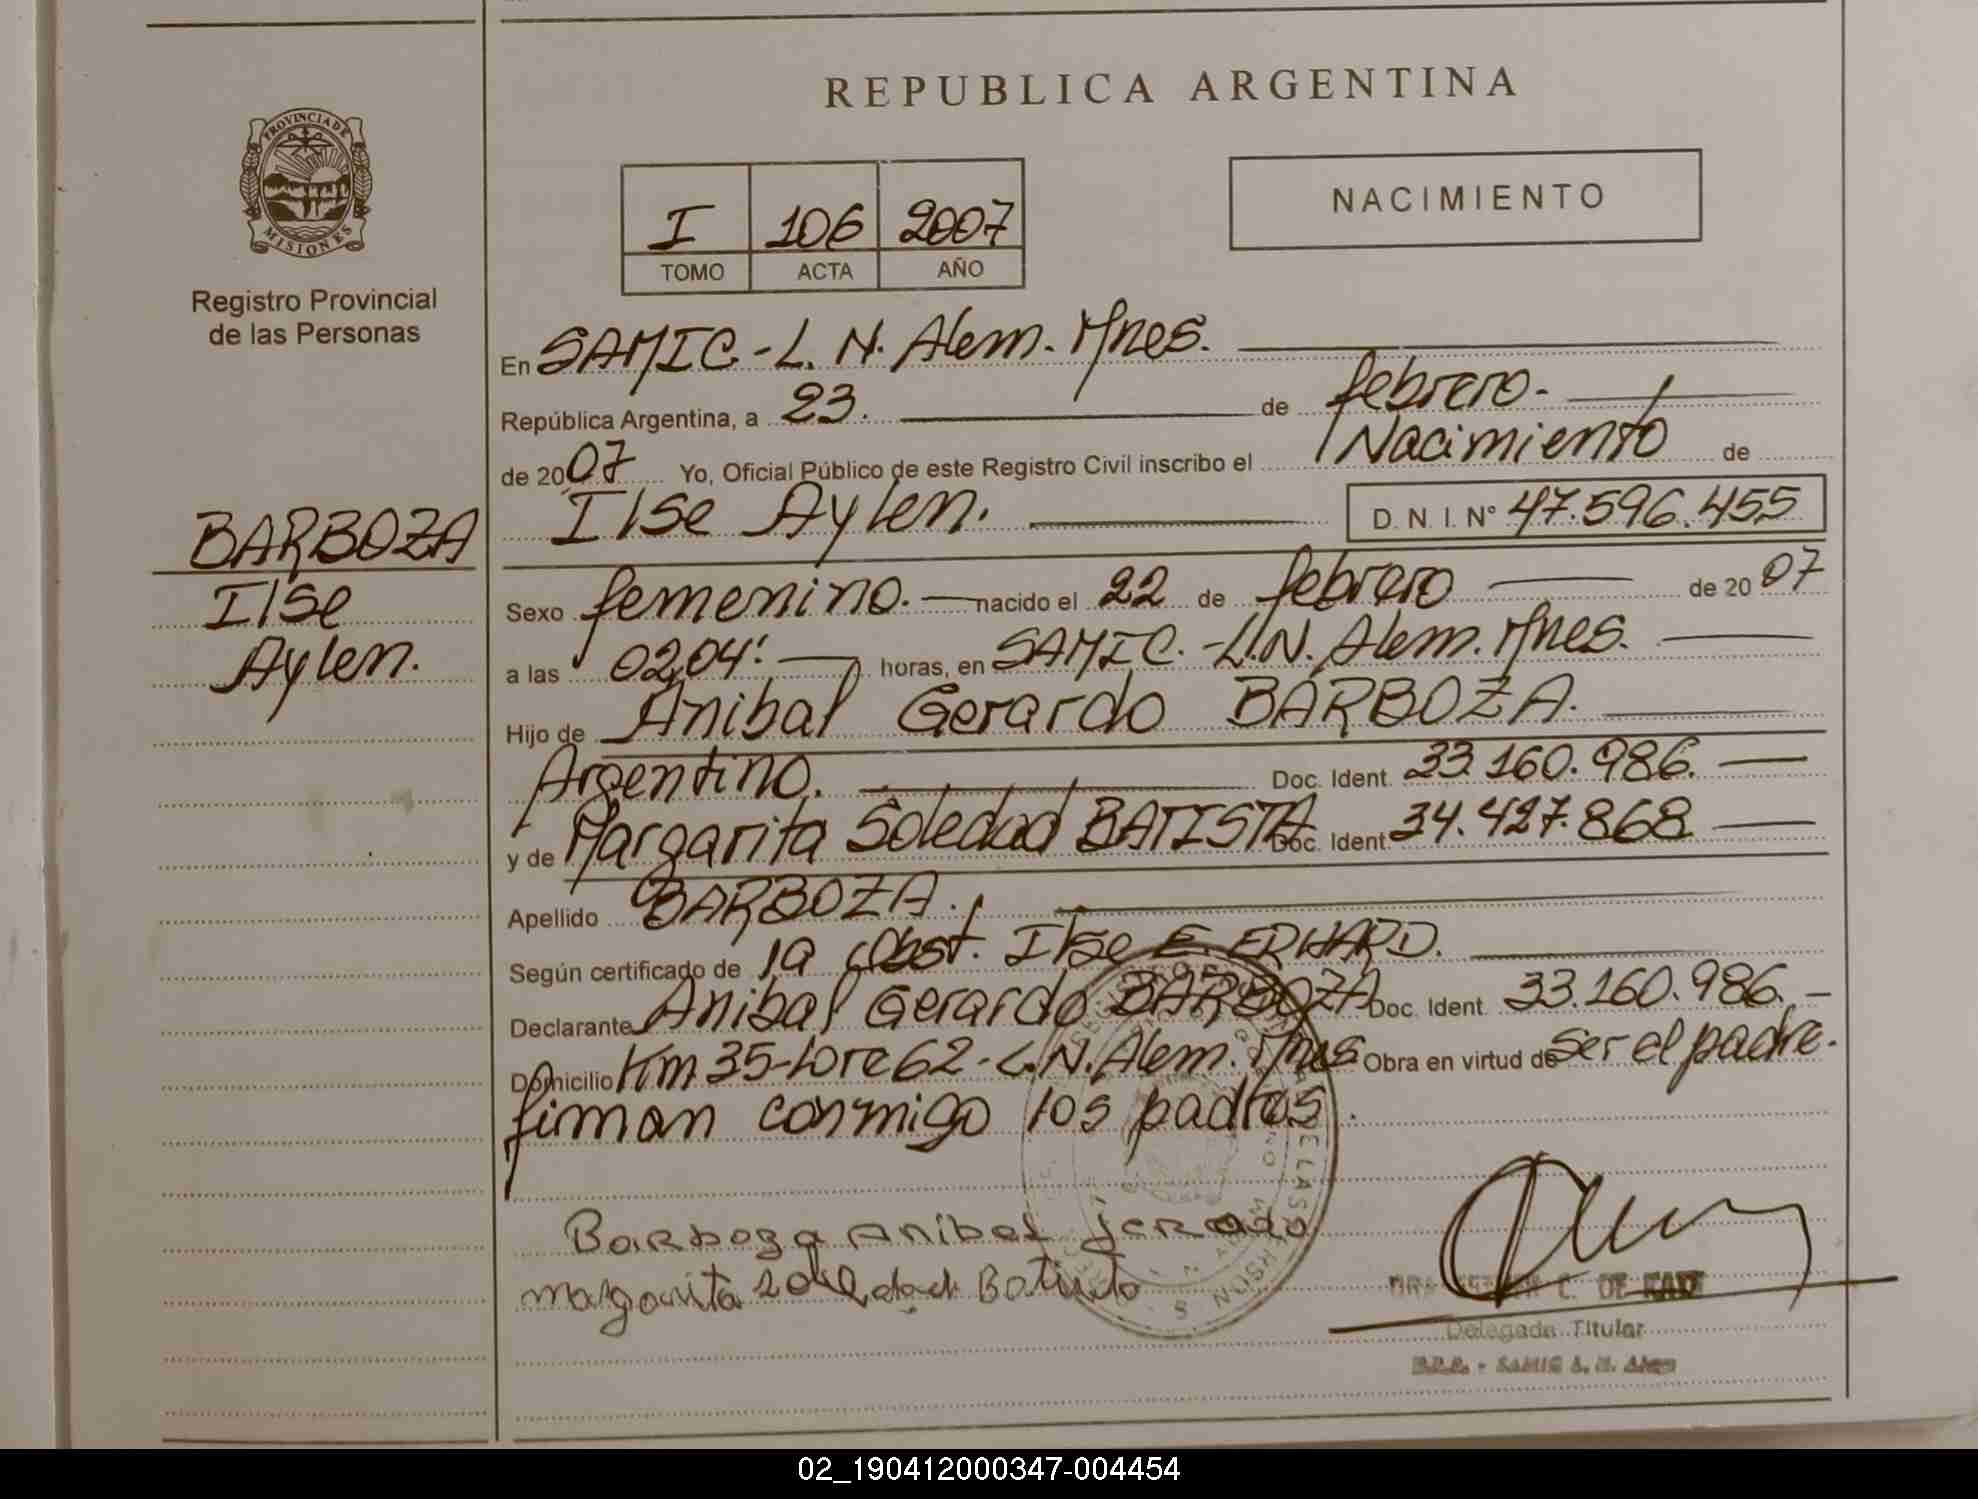 REPUBLICA ARGENTINA
PROVINCIA DE MISIONES
Registro Provincial
de las Personas
I 106 2007
TOMO ACTA AÑO
NACIMIENTO
BARBOZA
Ilse
Aylen.
En SAMIC-L. N. Alem. Mnes.
República Argentina, a 23. de febrero.
de 2007 Yo, Oficial Público de este Registro Civil inscribo el Nacimiento de
Ilse Aylen. D. N. I. N° 47.596.455
Sexo femenino. nacido el 22 de febrero de 2007
a las 02,04'. horas, en SAMIC.-L.N. Alem. Mnes.
Hijo de Anibal Gerardo BARBOZA.
Argentino. Doc. Ident. 33.160.986.
y de Margarita Soledad BATISTA Doc. Ident. 34.427.868
Apellido BARBOZA.
Según certificado de la Obst. Ilse E. ERHARD.
Declarante Anibal Gerardo BARBOZA Doc. Ident. 33.160.986.
Domicilio Km 35-Lote 62-L.N. Alem. Mnes Obra en virtud de ser el padre.
firman conmigo los padres.
Barboza Anibal Jerardo
margarita soledad Batista
C. DE
Delegada Titular
SAMIC L. N. Alem
02_190412000347-004454